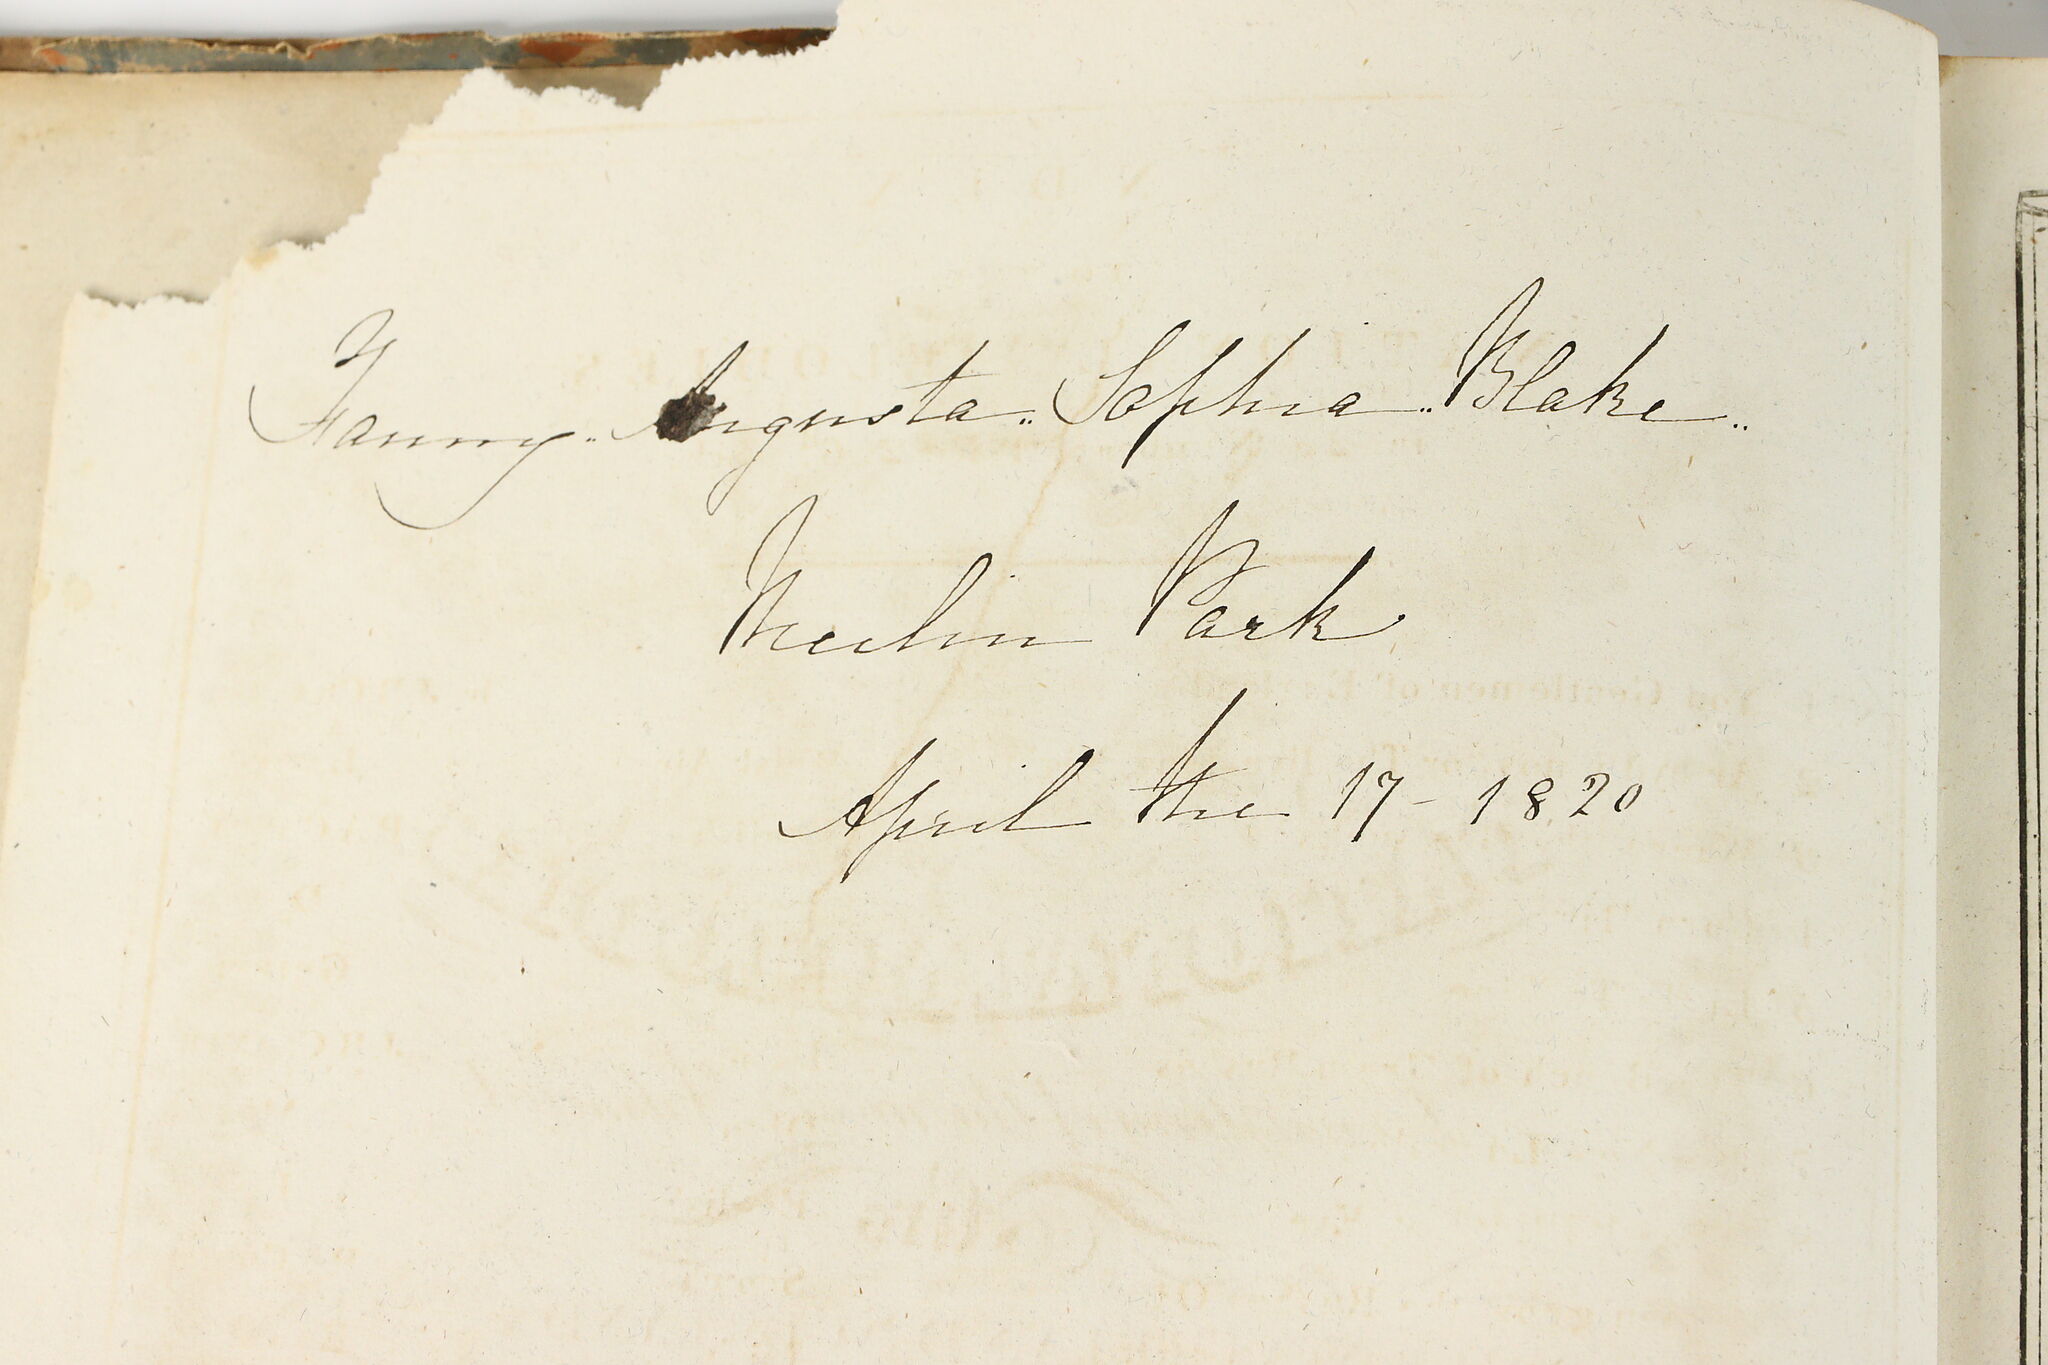 Fanny.. Augusta.. Sophia.. Blake..
Merlin Park
April the 17 - 1820